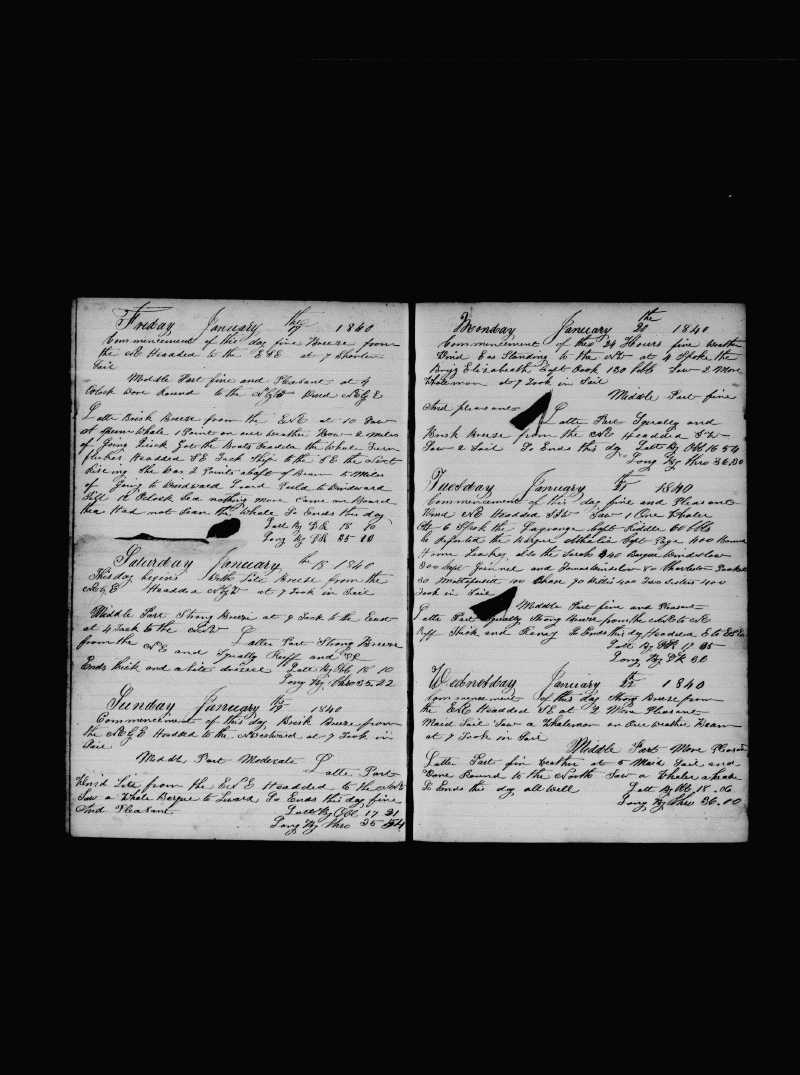 Friday January the 17 1840
Commencement of this day fine Breeze from
the NE Headed to the ESE at 7 Shorten
Sail
Middle Part fine and Pleasant at 4
Oclock wore Round to the
Latter Brisk Breeze from the ENE at 10 Saw
A Sperm Whale 1 Point on our weather Bow 2 Miles
of Going Quick Got the Boats Headed the Whale Turn
flukes Headed SE Tack Ship to the SE the Next
Riseing She was 2 Points abaft of Beam 5 Miles
of Going to Windward
till Oclock See nothing more Came on Board
Had not Seen the Whale So Ends this day
Latt By D.R 18 10
Long By D.R 35 10
Saturday January th 18 1840
This day begins With Lite Breeze from the
Headed at 7 Took in Sail
Middle Part Strong Breeze at 9 Tack to the East
at 4 Tack to the
Latter Part Strong Breeze
from the NE and Squally Reeff and
Ends thick and Latt By Ob 18 10
Long By Chro 35.22
Sunday January th 19 1840
Commencement of this day Brisk Breeze from
the Headed to the at 7 Took in
Sail
Middle Part Moderate
Latter Part
Wind Lite from the ENE Headed to the
Saw a Whale Barque to Leward So Ends this day fine
And Pleasant Latt By Obl 17 21
Long By Chro 35
Monday January the 20 1840
Commencement of this 24 Hours fine Weather
Wind Eas Standing to the at 4 Spoke the
Brigg Elizabeath Capt Cook 180 bbls Saw 2 More
Whalemen at 7 Took in Sail
Middle Part fine
And pleasant
Latter Part Squally and
Brisk Breeze from the NE Headed
Saw 2 Sail So Ends this day Latt By Obl 16 54
Long By Chro 36.30
Tuesday January th 21 1840
Commencement of this day fine and Pleasant
Wind NE Headed Saw 1 One Whaler
At 6 Spok the Lagrange Capt Riddle 60 bbls
He Reported the Barque Athalia Capt Page 400 Bound
Home Leakey, Also the Sarah 240 Barque Winslow
300 and James and Charleston Packet
30 100 70 400 Two Sisters 400
Took in Sail
Middle Part fine and Pleasant
Latter Part Squally Strong Breeze from the to NE
Reff Thick and Rainy So Ends this dy Headed E to
Latt By DR 17 35
Long By DR 36
Wednesday January th 22 1840
Commencement of this day Strong Breeze from
the ENE Headed SE at 2 More Pleasant
Maid Sail Saw a Whaleman on Our weather Beam
at 7 Took in Sail
Middle Part More Pleasant
Latter Part fin Weather at 5 Maid Sail and
Wore Round to the North Saw a Whaler ahead
So Ends this day all Well Latt By Ob 18.06
Long By Chro 36.00